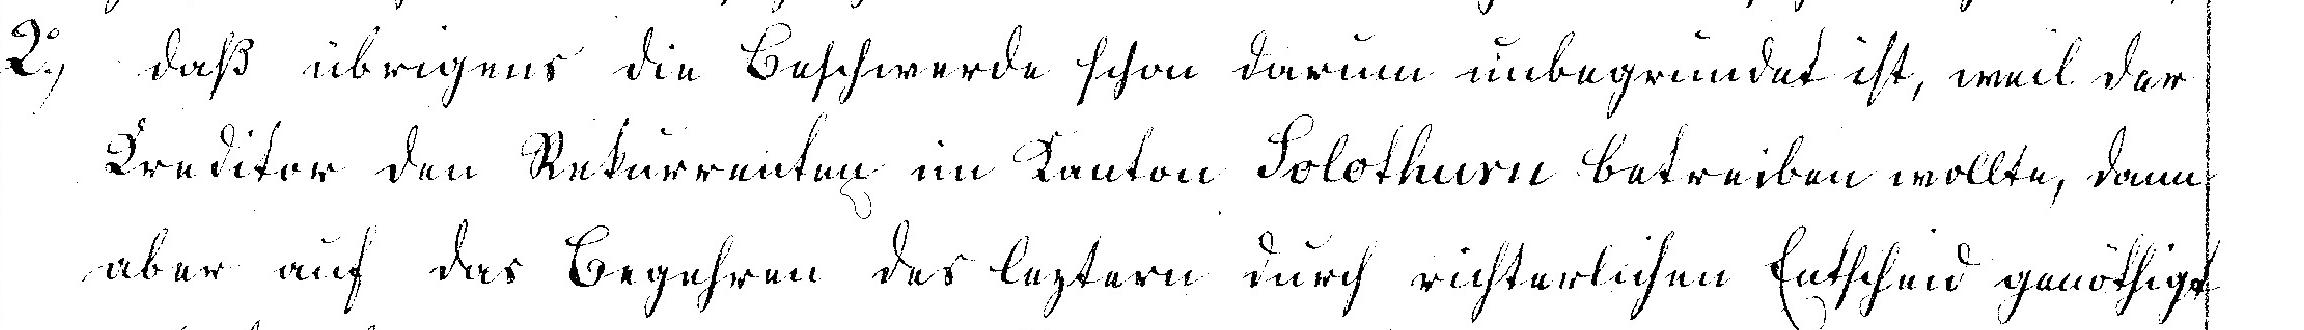 2.) daß übrigens die Beschwerde schon darum unbegründet ist, weil der
Kreditor den Rekurrenten im Kanton Solothurn betreiben wollte, dann
aber auf das Begehren des leztern durch richterlichen Entscheid genöthigt